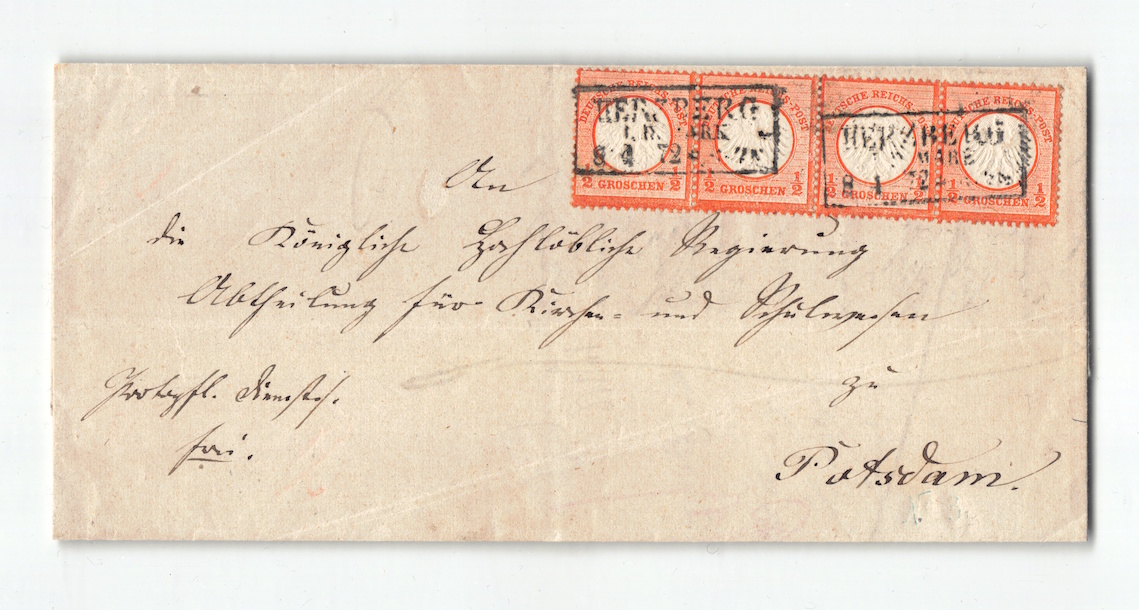 DEUTSCHE REICHS-POST DEUTSCHE REICHS-POST DEUTSCHE REICHS-POST DEUTSCHE REICHS-POST
HERZBERG HERZBERG
I.D. MARK MARK
8 4 72 8 4 72
1/2 GROSCHEN 1/2 1/2 GROSCHEN 1/2 1/2 GROSCHEN 1/2 1/2 GROSCHEN 1/2
An
die Königliche Hochlöbliche Regierung
Abtheilung für Kirchen- und Schulwesen
zu
Portopfl. Diensts.
frei.
Potsdam.